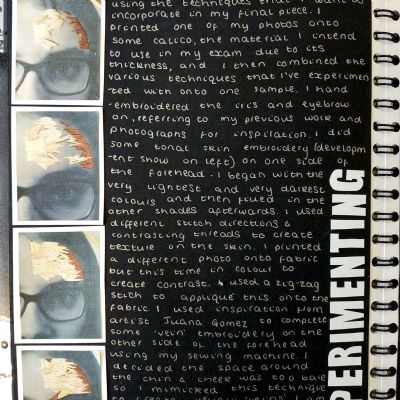 using the techniques that I want to
incorporate in my final piece. I
printed one of my photos onto
some calico, the material I intend
to use in my exam due to its
thickness, and I then combined the
various techniques that I've experimen
-ted with onto one sample. I hand
-embroidered the iris and eyebrow
on, referring to my previous work and
photographs for inspiration. I did
some tonal skin embroidery (developm
-ent show on left) on one side of
the forehead. I began with the
very lightest and very darkest
colours and then filled in the
other shades afterwards. I used
different stitch directions &
contrasting threads to create
texture on the skin. I printed
a different photo onto fabric
but this time in colour to
create contrast. I used a zig-zag
stitch to appliqué this onto the
fabric. I used inspiration from
artist Juana Gomez to complete
some 'vein' embroidery on the
other side of the forehead
using my sewing machine. I
decided the space around
the chin & cheek was too bare
so I mimicked this technique
to create 'veins'. I am
PERIMENTING